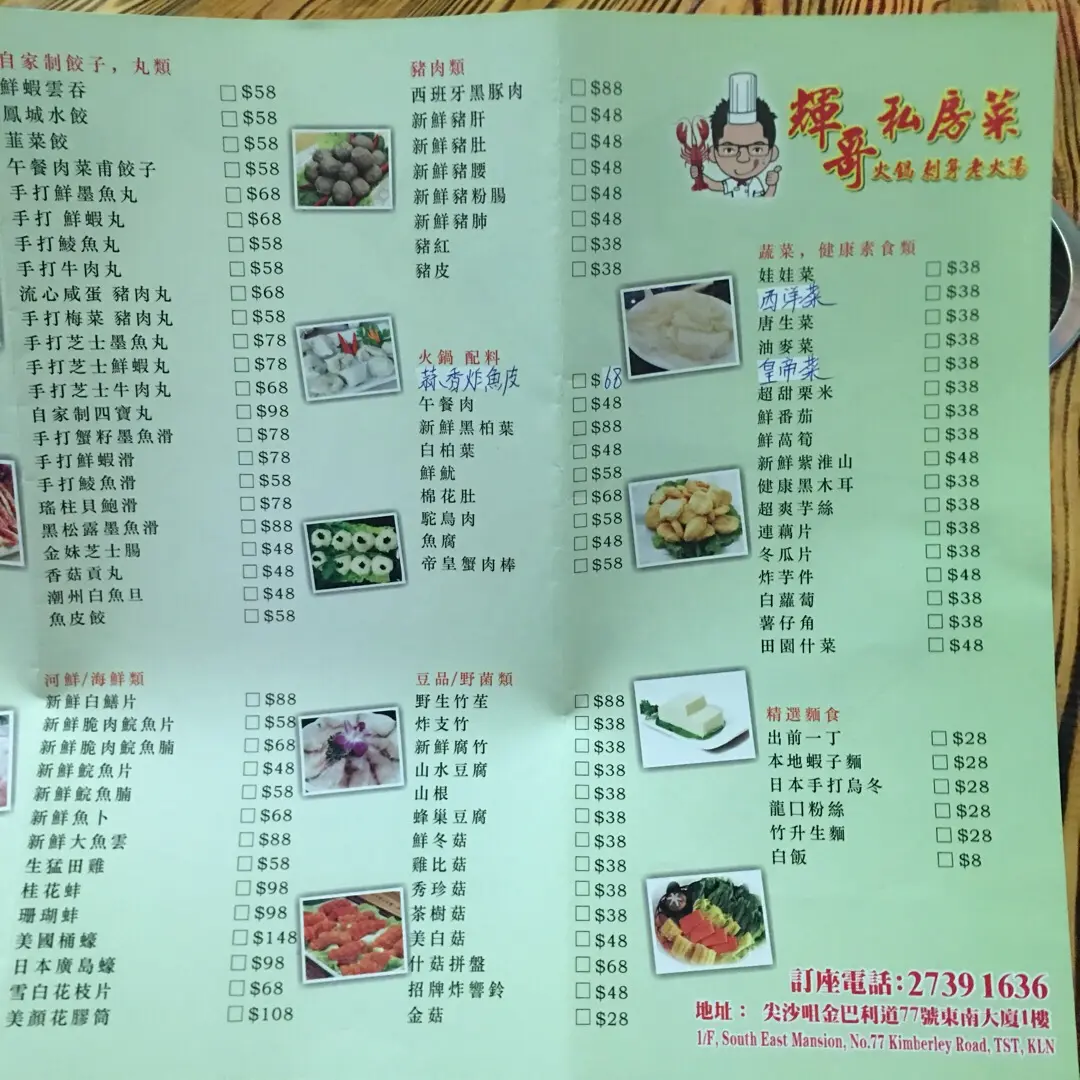 自家制餃子，丸類
鮮蝦雲吞 □$58
鳳城水餃 □$58
韮菜餃 □$58
午餐肉菜甫餃子 □$58
手打鮮墨魚丸 □$68
手打 鮮蝦丸 □$68
手打鯪魚丸 □$58
手打牛肉丸 □$58
流心咸蛋 豬肉丸 □$68
手打梅菜 豬肉丸 □$58
手打芝士墨魚丸 □$78
手打芝士鮮蝦丸 □$78
手打芝士牛肉丸 □$68
自家制四寶丸 □$98
手打蟹籽墨魚滑 □$78
手打鮮蝦滑 □$78
手打鯪魚滑 □$58
瑤柱貝鮑滑 □$78
黑松露墨魚滑 □$88
金妹芝士腸 □$48
香菇貢丸 □$48
潮州白魚旦 □$48
魚皮餃 □$58
河鮮/海鮮類
新鮮白鱔片 □$88
新鮮脆肉鯇魚片 □$58
新鮮脆肉鯇魚腩 □$68
新鮮鯇魚片 □$48
新鮮鯇魚腩 □$58
新鮮魚卜 □$68
新鮮大魚雲 □$88
生猛田雞 □$58
桂花蚌 □$98
珊瑚蚌 □$98
美國桶蠔 □$148
日本廣島蠔 □$98
雪白花枝片 □$68
美顏花膠筒 □$108
豬肉類
西班牙黑豚肉 □$88
新鮮豬肝 □$48
新鮮豬肚 □$48
新鮮豬腰 □$48
新鮮豬粉腸 □$48
新鮮豬肺 □$48
豬紅 □$38
豬皮 □$38
火鍋 配料
蒜香炸魚皮 □$68
午餐肉 □$48
新鮮黑柏葉 □$88
白柏葉 □$48
鮮魷 □$58
棉花肚 □$68
駝鳥肉 □$58
魚腐 □$48
帝皇蟹肉棒 □$58
豆品/野菌類
野生竹笙 □$88
炸支竹 □$38
新鮮腐竹 □$38
山水豆腐 □$38
山根 □$38
蜂巢豆腐 □$38
鮮冬菇 □$38
雞比菇 □$38
秀珍菇 □$38
茶樹菇 □$38
美白菇 □$48
什菇拼盤 □$68
招牌炸響鈴 □$48
金菇 □$28
輝哥私房菜
火鍋 刺身 老火湯
蔬菜，健康素食類
娃娃菜 □$38
西洋菜 □$38
唐生菜 □$38
油麥菜 □$38
皇帝菜 □$38
超甜栗米 □$38
鮮番茄 □$38
鮮萵筍 □$38
新鮮紫淮山 □$48
健康黑木耳 □$38
超爽芋絲 □$38
連藕片 □$38
冬瓜片 □$38
炸芋件 □$48
白蘿蔔 □$38
薯仔角 □$38
田園什菜 □$48
精選麵食
出前一丁 □$28
本地蝦子麵 □$28
日本手打烏冬 □$28
龍口粉絲 □$28
竹升生麵 □$28
白飯 □$8
訂座電話：2739 1636
地址： 尖沙咀金巴利道77號東南大廈1樓
1/F, South East Mansion, No.77 Kimberley Road, TST, KLN